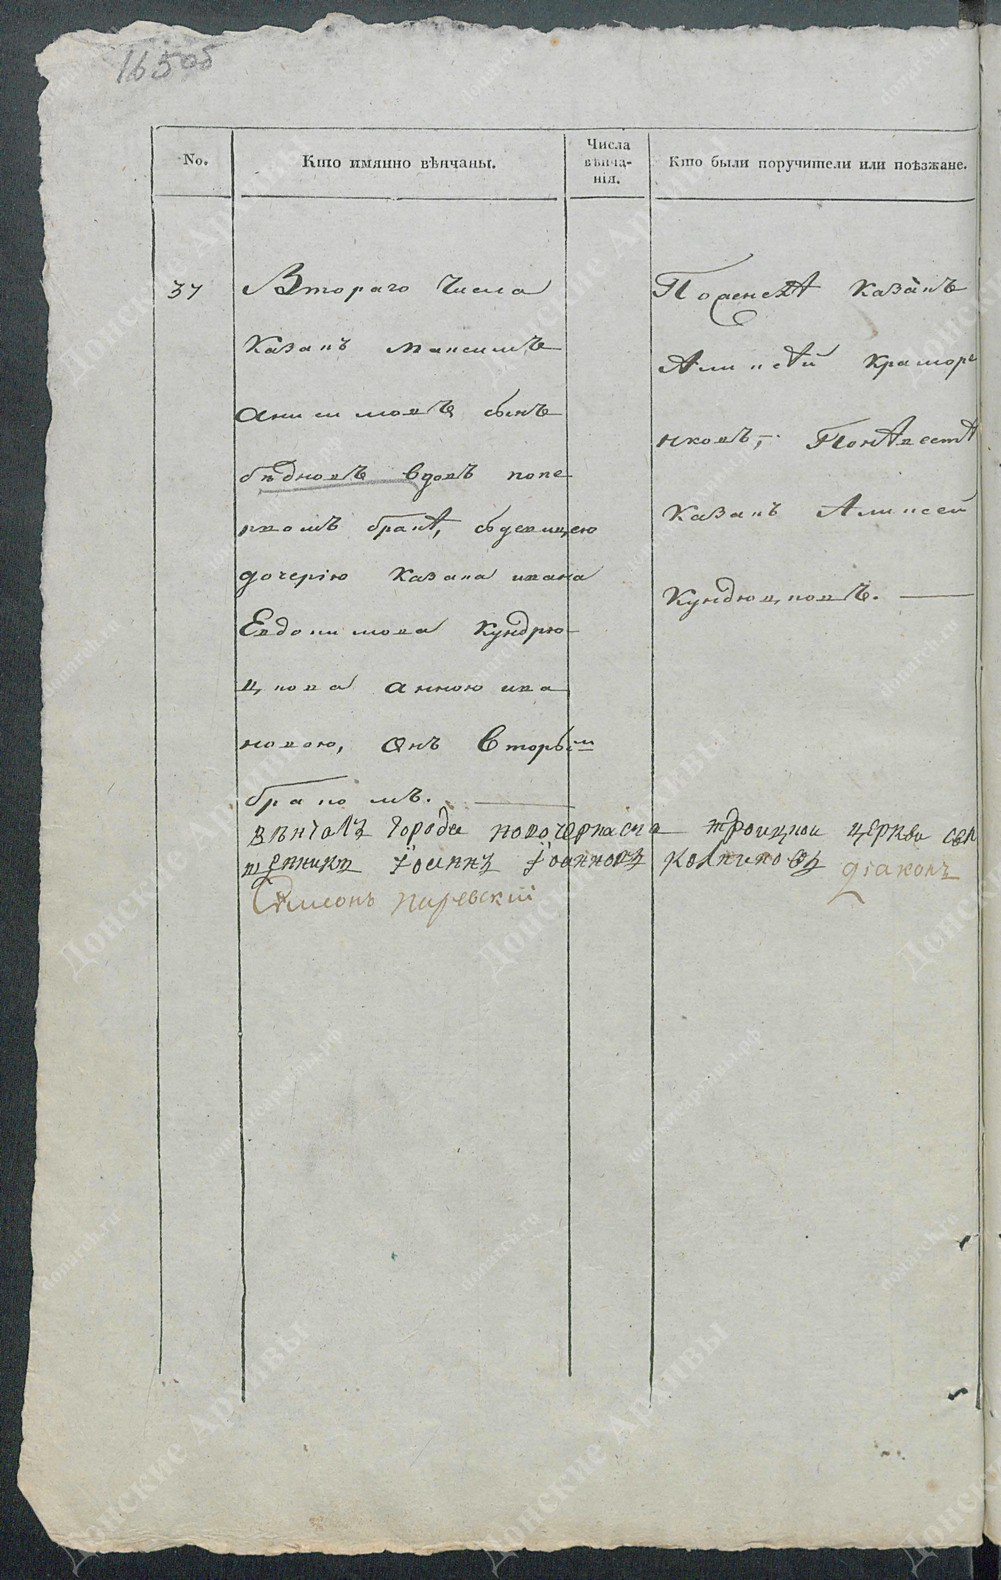 165об
No.
Кто имянно вѣнчаны.
Числа
вѣнча-
нія.
Кто были поручители или поѣзжане.
37
Втораго Числа
Казакъ Максимъ
Анисимовъ сынъ
бѣдновъ вдовъ попе
рвомъ бракѣ, сдевицею
дочерію Казака ивана
Евдокимова Кундрю
цкова анною ива
новою, Онъ Вторым
бракомъ.
По женихѣ Казакъ
Алексѣй Крамору
нковъ, Поневестѣ
Казакъ Алексей
Кундюцковъ.
вѣнчалъ города новочеркаска троицкои церкви свя
щенникъ Іоаннъ Іоанновъ діаконъ
Симеонъ
Донские Архивы
donarch.ru
донскиеархивы.рф